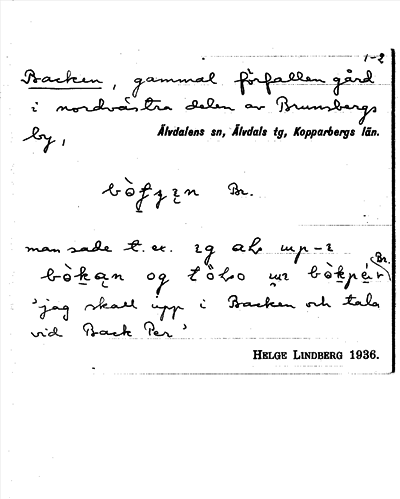 1-2
Backen, gammal förfallen gård
i nordvästra delen av Brunnsbergs
by, Älvdalens sn, Älvdals tg, Kopparbergs län.
Br.
man sade t. ex.
Br.
og
'jag skall upp i Backen och tala
vid Back Per'
HELGE LINDBERG 1936.